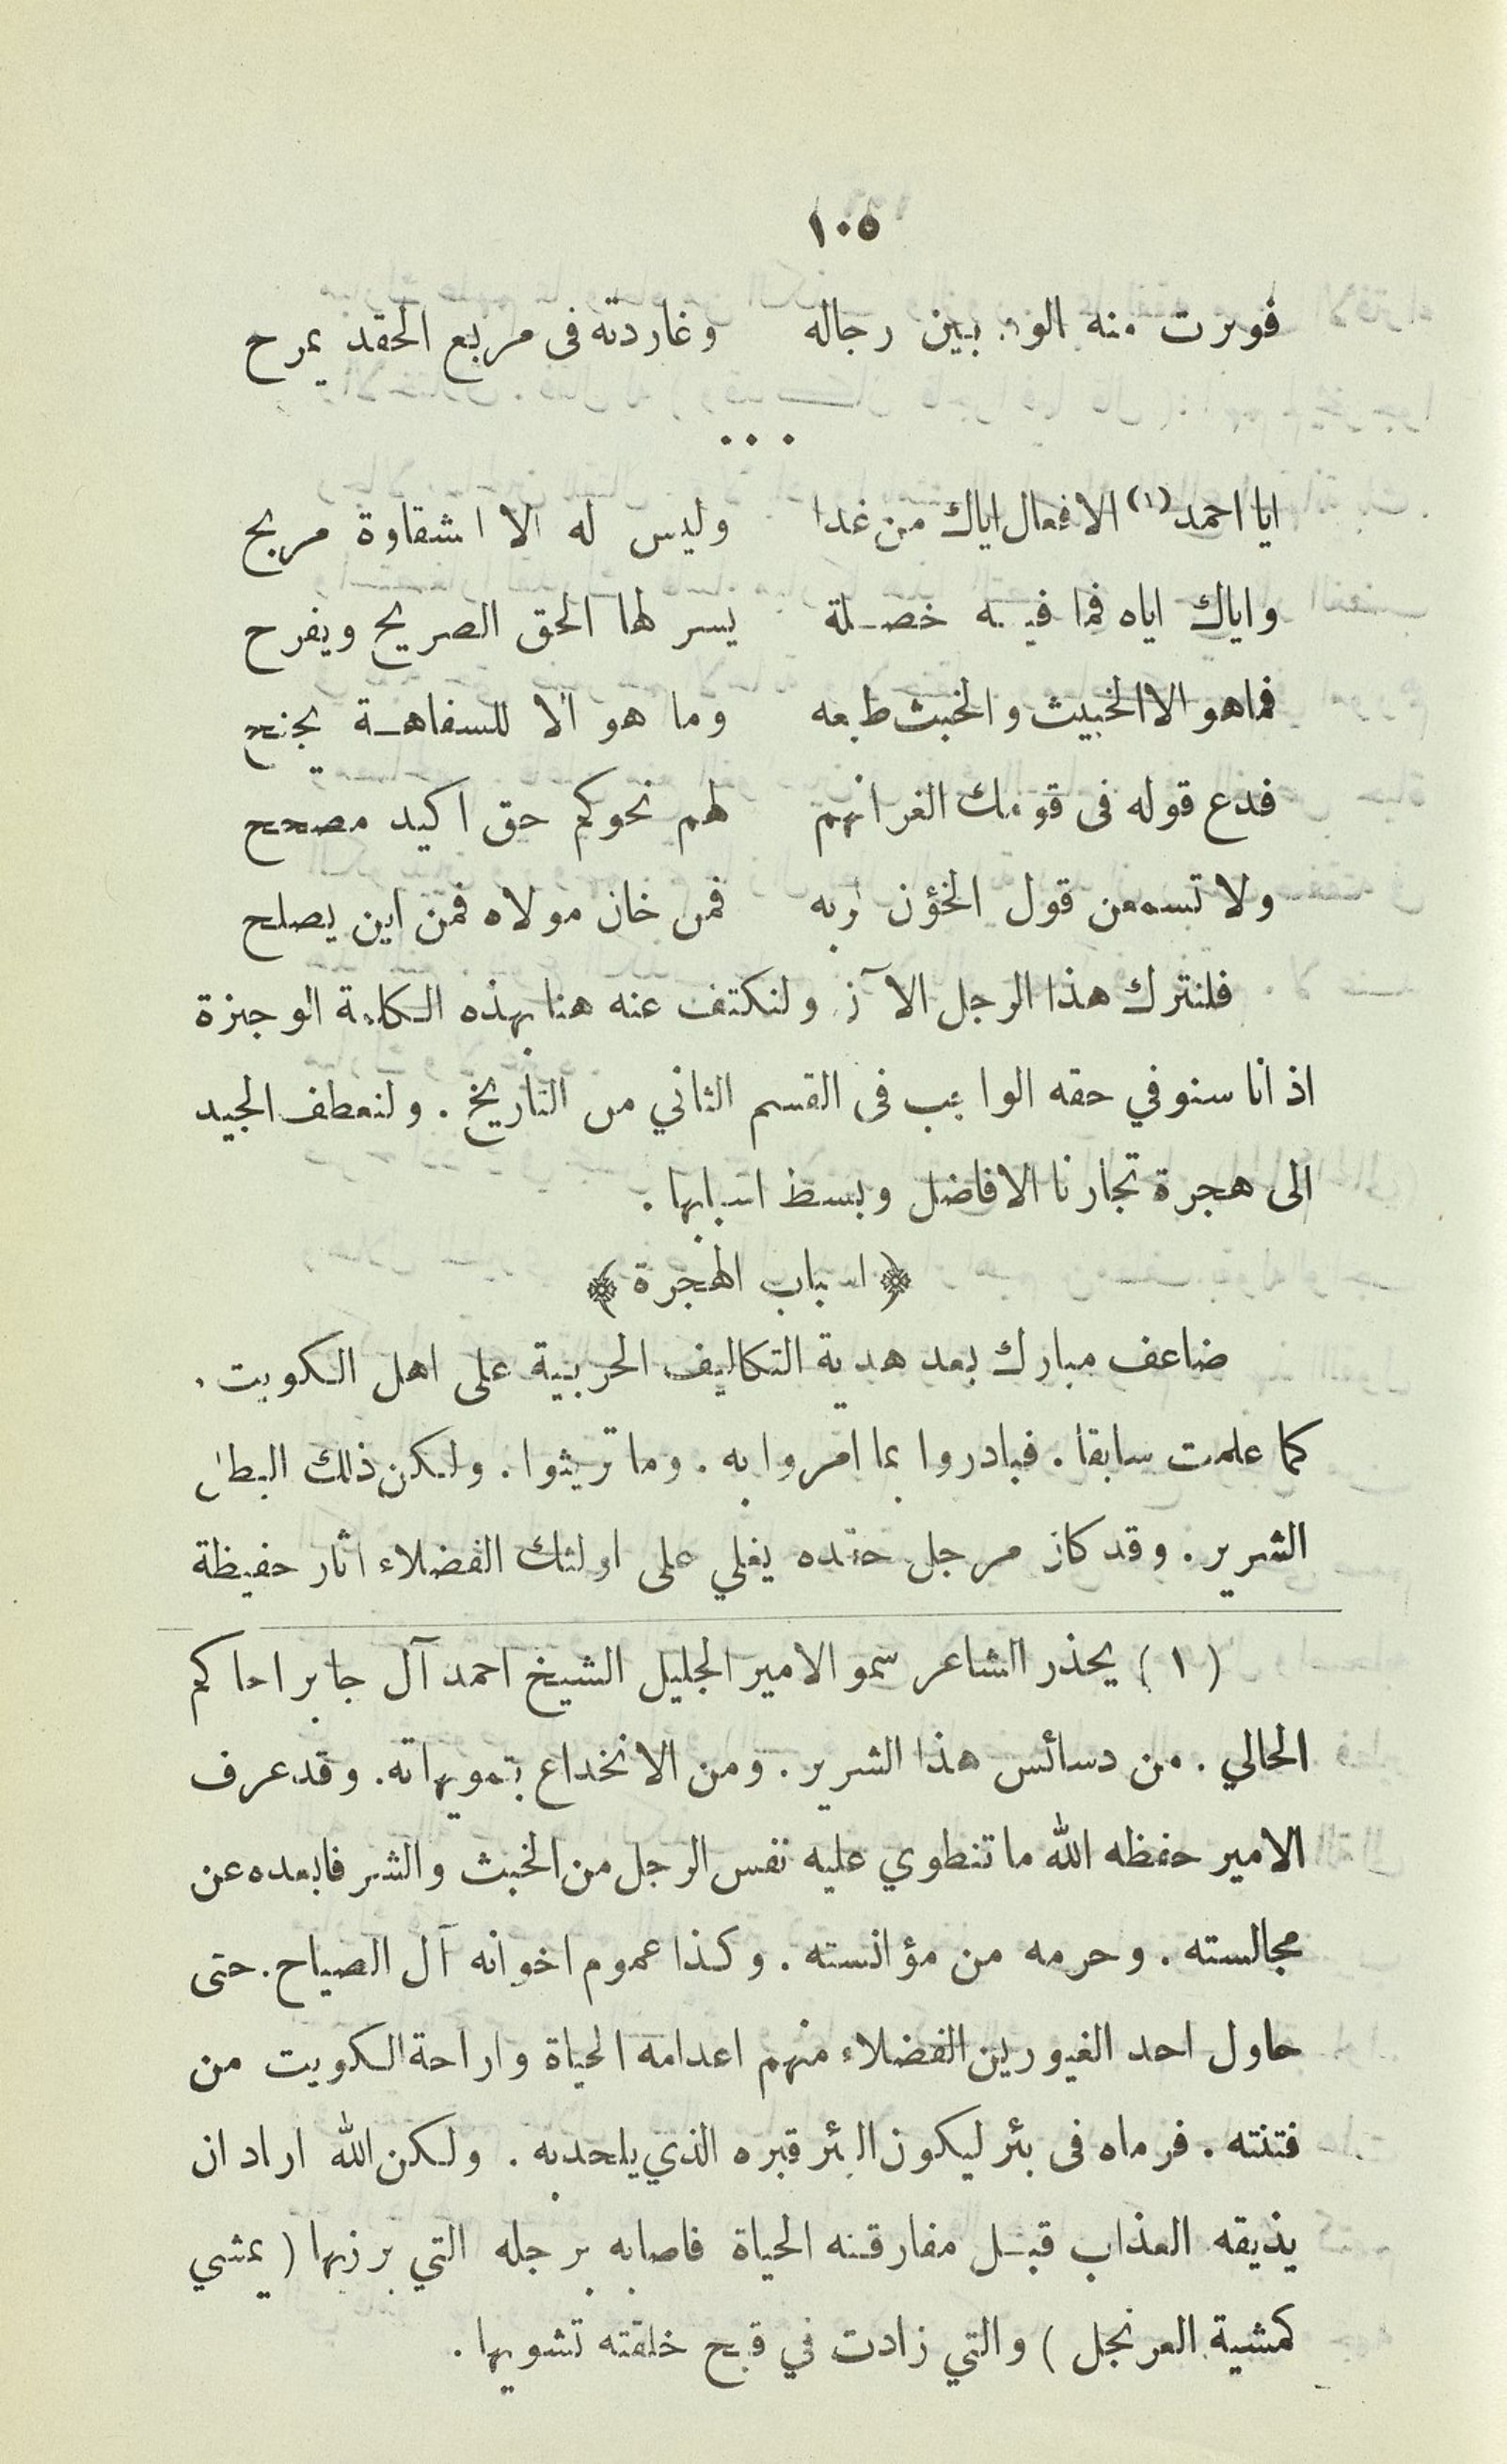 ١٠٥
فورت منه الود بين رجاله وغاردته فى مربع الحقد يمرح
...
ايا احمد (١) الافعال اياك من غدا وليس له الا الشقاوة مربح
واياك اياه فما فيه خصلة يسر لها الحق الصريح ويفرح
فماهو الا الخبيث والخبث طبعه وما هو الا للسفاهة يجنح
فدع قوله فى قومك الغر انهم لهم نحوكم حق اكيد مصحح
ولا تسمعن قول الخؤن لربه فمن خان مولاه فمن اين يصلح
فلنترك هذا الرجل الآن ولنكتف عنه هنا بهذه الكلمة الوجيزة
اذ انا سنوفي حقه الواجب فى القسم الثاني من التأريخ . ولنعطف الجيد
الى هجرة تجارنا الافاضل وبسط اسبابها .
﴿ اسباب الهجرة ﴾
ضاعف مبارك بعد هدية التكاليف الحربية على اهل الكويت .
كما علمت سابقا . فبادروا بما امروا به . وما تريثوا . ولكن ذلك البطل
الشرير . وقد كان مرجل حقده يغلي على اولئك الفضلاء اثار حفيظة
( ١ ) يحذر الشاعر سمو الامير الجليل الشيخ احمد آل جابر الحاكم
الحالي . من دسائس هذا الشرير . ومن الانخداع بتمويهاته . وقد عرف
الامير حفظه الله ما تنطوي عليه نفس الرجل من الخبث والشر فابعده عن
مجالسته . وحرمه من مؤانسته . وكذا عموم اخوانه آل الصباح . حتى
حاول احد الغيورين الفضلاء منهم اعدامه الحياة واراحة الكويت من
فتنته . فرماه فى بئر ليكون البئر قبره الذي يلحد به . ولكن الله اراد ان
يذيقه العذاب قبل مفارقته الحياة فاصابه برجله التي برزبها ( يمشي
كمشية العرنجل ) والتي زادت في قبح خلقته تشويها .